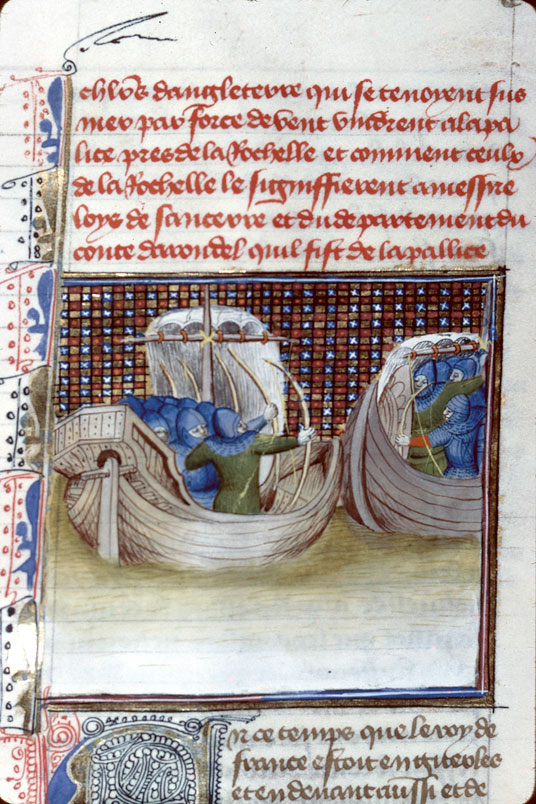 chlrs dangleterre qui se tenoyent sus
mer par force de vent vindrent a la pa
lice pres de la Rochelle et comment ceulx
de la Rochelle le signiffierent a messire
loys de sancerre et du departement du
conte darondel quil fist de la pallice
En ce temps que le roy de
france estoit en gucoles
et en devant aussi et de